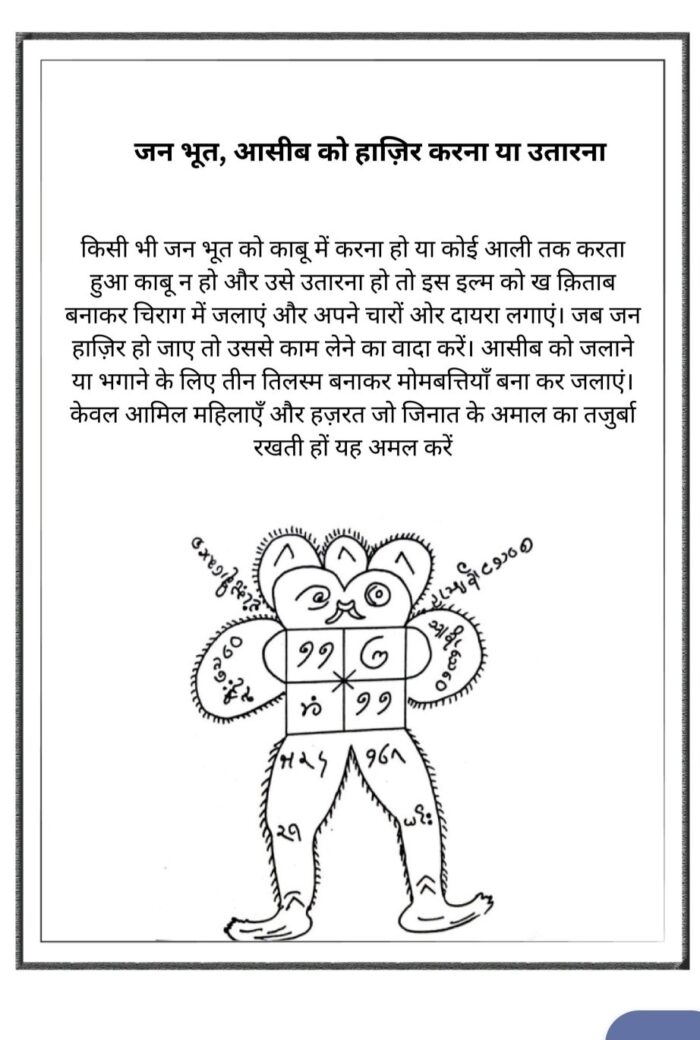 जन भूत, आसीब को हाज़िर करना या उतारना
किसी भी जन भूत को काबू में करना हो या कोई आली तक करता
हुआ काबू न हो और उसे उतारना हो तो इस इल्म को ख क़िताब
बनाकर चिराग में जलाएं और अपने चारों ओर दायरा लगाएं। जब जन
हाज़िर हो जाए तो उससे काम लेने का वादा करें। आसीब को जलाने
या भगाने के लिए तीन तिलस्म बनाकर मोमबत्तियाँ बना कर जलाएं।
केवल आमिल महिलाएँ और हज़रत जो जिनात के अमाल का तजुर्बा
रखती हों यह अमल करें